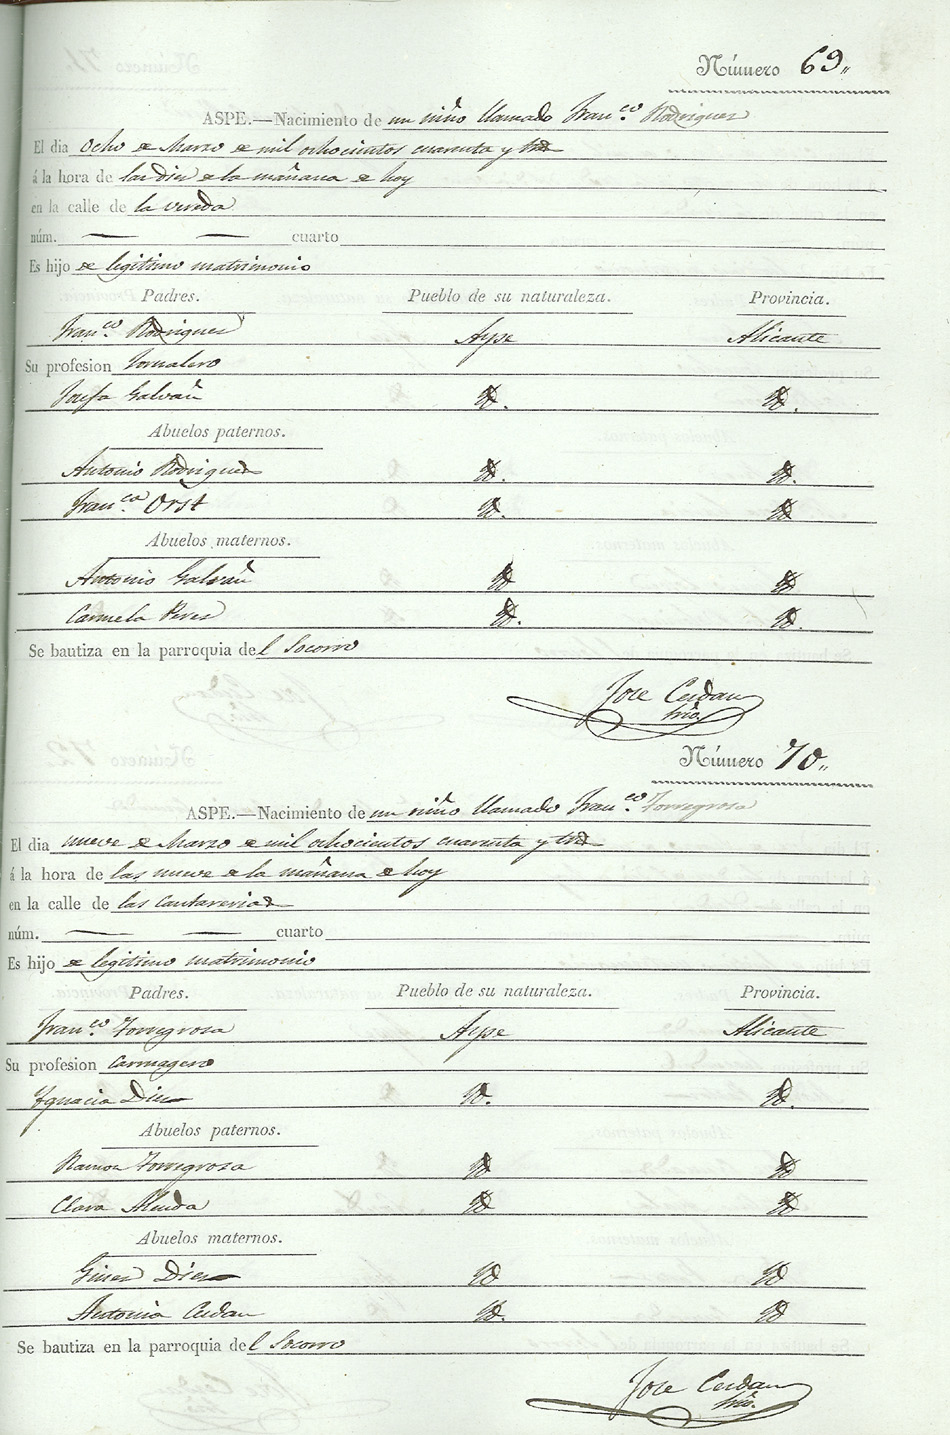 Número 69.
ASPE.—Nacimiento de un niño llamado Fran.co Rodriguez
El dia ocho de Marzo de mil ochocientos cuarenta y tres
á la hora de las diez de la mañana de hoy
en la calle de la vereda
núm. — — cuarto
Es hijo de legitimo matrimonio
Padres. Pueblo de su naturaleza. Provincia.
Fran.co Rodriguez Aspe Alicante
Su profesion Jornalero
Josefa Galvañ Yd. Yd.
Abuelos paternos.
Antonio Rodriguez Yd. Yd.
Fran.ca Orst Yd. Yd.
Abuelos maternos.
Antonio Galvañ Yd. Yd.
Carmela Perez Yd. Yd.
Se bautiza en la parroquia del Socorro
Jose Cerdan
Srio.
Número 70.
ASPE.—Nacimiento de un niño llamado Fran.co Torregrosa
El dia nueve de Marzo de mil ochocientos cuarenta y tres
á la hora de las nueve de la mañana de hoy
en la calle de las Cantarerias
núm. — — cuarto
Es hijo de legitimo matrimonio
Padres. Pueblo de su naturaleza. Provincia.
Fran.co Torregrosa Aspe Alicante
Su profesion
Ygnacia Diez Yd. Yd.
Abuelos paternos.
Ramon Torregrosa Yd Yd
Clara Alenda Yd Yd
Abuelos maternos.
Gines Diez Yd Yd
Antonia Cerdan Yd. Yd
Se bautiza en la parroquia del Socorro
Jose Cerdan
Srio.